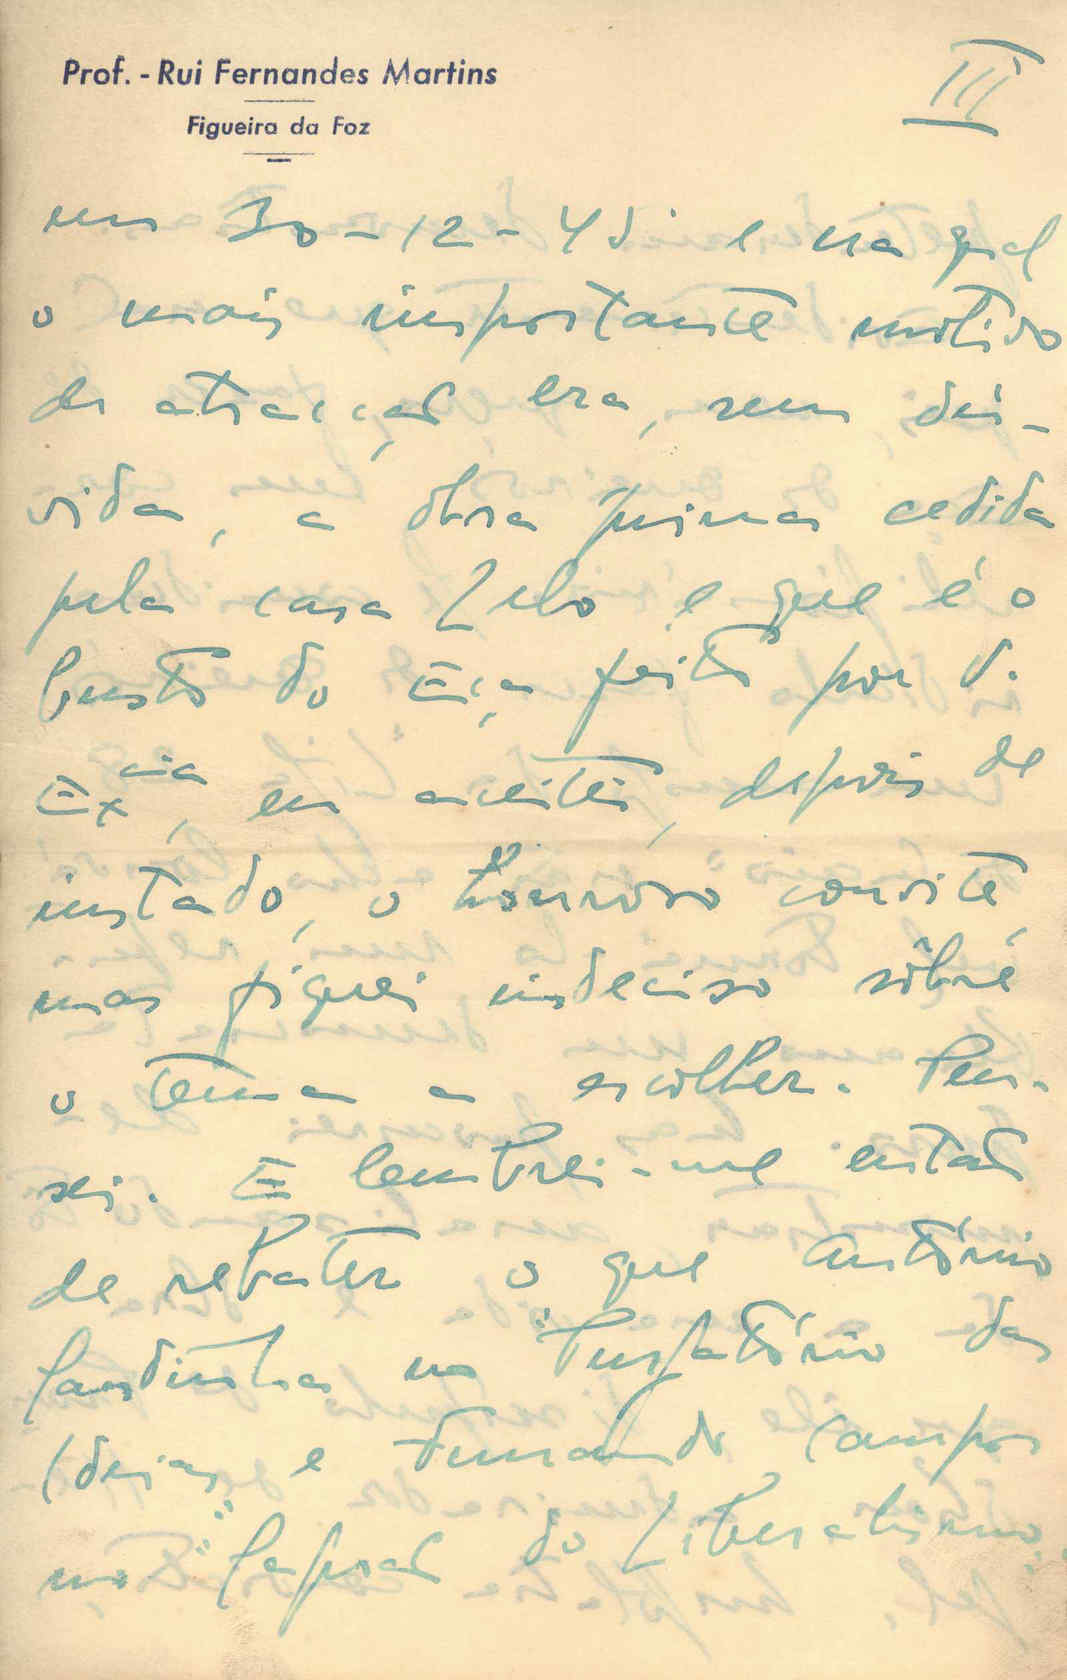 Prof. - Rui Fernandes Martins
Figueira da Foz
III
em 30-12-45 e na qual
o mais importante motivo
de atracção era, sem dú-
vida, a obra prima cedida
pela casa Lelo e que é o
busto do Eça feito por V.
Ex.cia, eu aceitei, depois de
instado, o honroso convite,
mas fiquei indeciso sôbre
o tema a escolher. Pen-
sei. E lembrei-me então
de rebater o que António
Sardinha no "Purgatório das
Ideias" e Fernando Campos
no "
do Liberalismo"